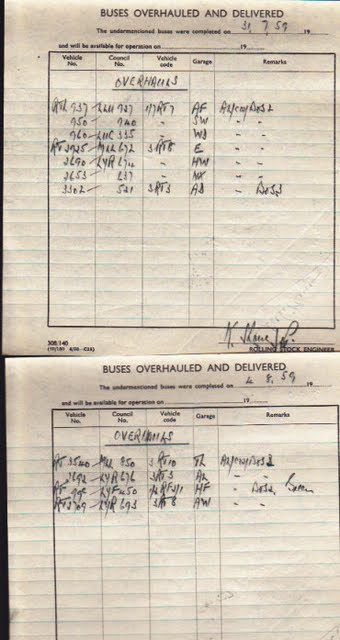 BUSES OVERHAULED AND DELIVERED
The undermentioned buses were completed on 31. 7. 59 19
and will be available for operation on 19
Vehicle No. Council No. Vehicle code Garage Remarks
OVERHAULS
RTL 937 LUC 737 1/7RT7 AF
950 740 " SW " "
960 LUC 335 " WD " "
RT 3925 MLL 672 3RT8 E " "
2690 LYR 674 " HW " "
2653 637 " NX " "
3302 521 3RT3 AD "
308/140
ROLLING STOCK ENGINEER
BUSES OVERHAULED AND DELIVERED
The undermentioned buses were completed on 4. 8. 59 19
and will be available for operation on 19
Vehicle No. Council No. Vehicle code Garage Remarks
OVERHAULS
RT 3540 850 3RT10 TL
2692 LYR 676 3RT3 AL " "
RT LYF 450 HF "
RT 2709 LYR 693 3RT8 AW " "